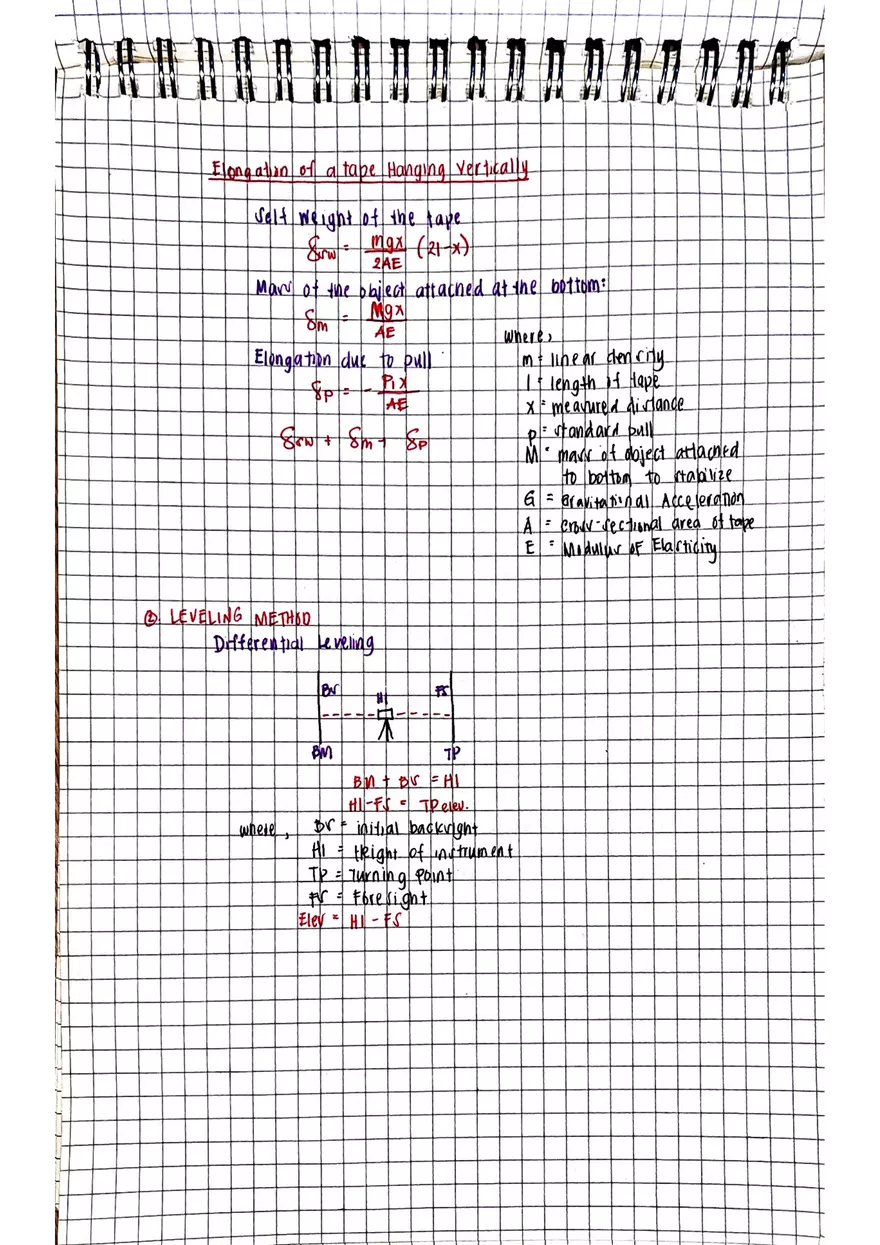 Elongation of a tape Hanging Vertically
Self Weight of the tape
δsw = mgx/2AE (2l-x)
Mass of the object attached at the bottom:
δm = Mgx/AE
Elongation due to pull
δp = - P1x/AE
δsw + δm + δp
where,
m = linear density
l = length of tape
x = measured distance
p = standard pull
M = mass of object attached
to bottom to stabilize
G = Gravitational Acceleration
A = cross-sectional area of tape
E = Modulus OF Elasticity
②. LEVELING METHOD
Differential Leveling
BS HI FS
BM TP
BM + BS = HI
HI-FS = TP elev.
where, BS = initial backsight
HI = Height of instrument
TP = Turning Point
FS = Foresight
Elev = HI - FS